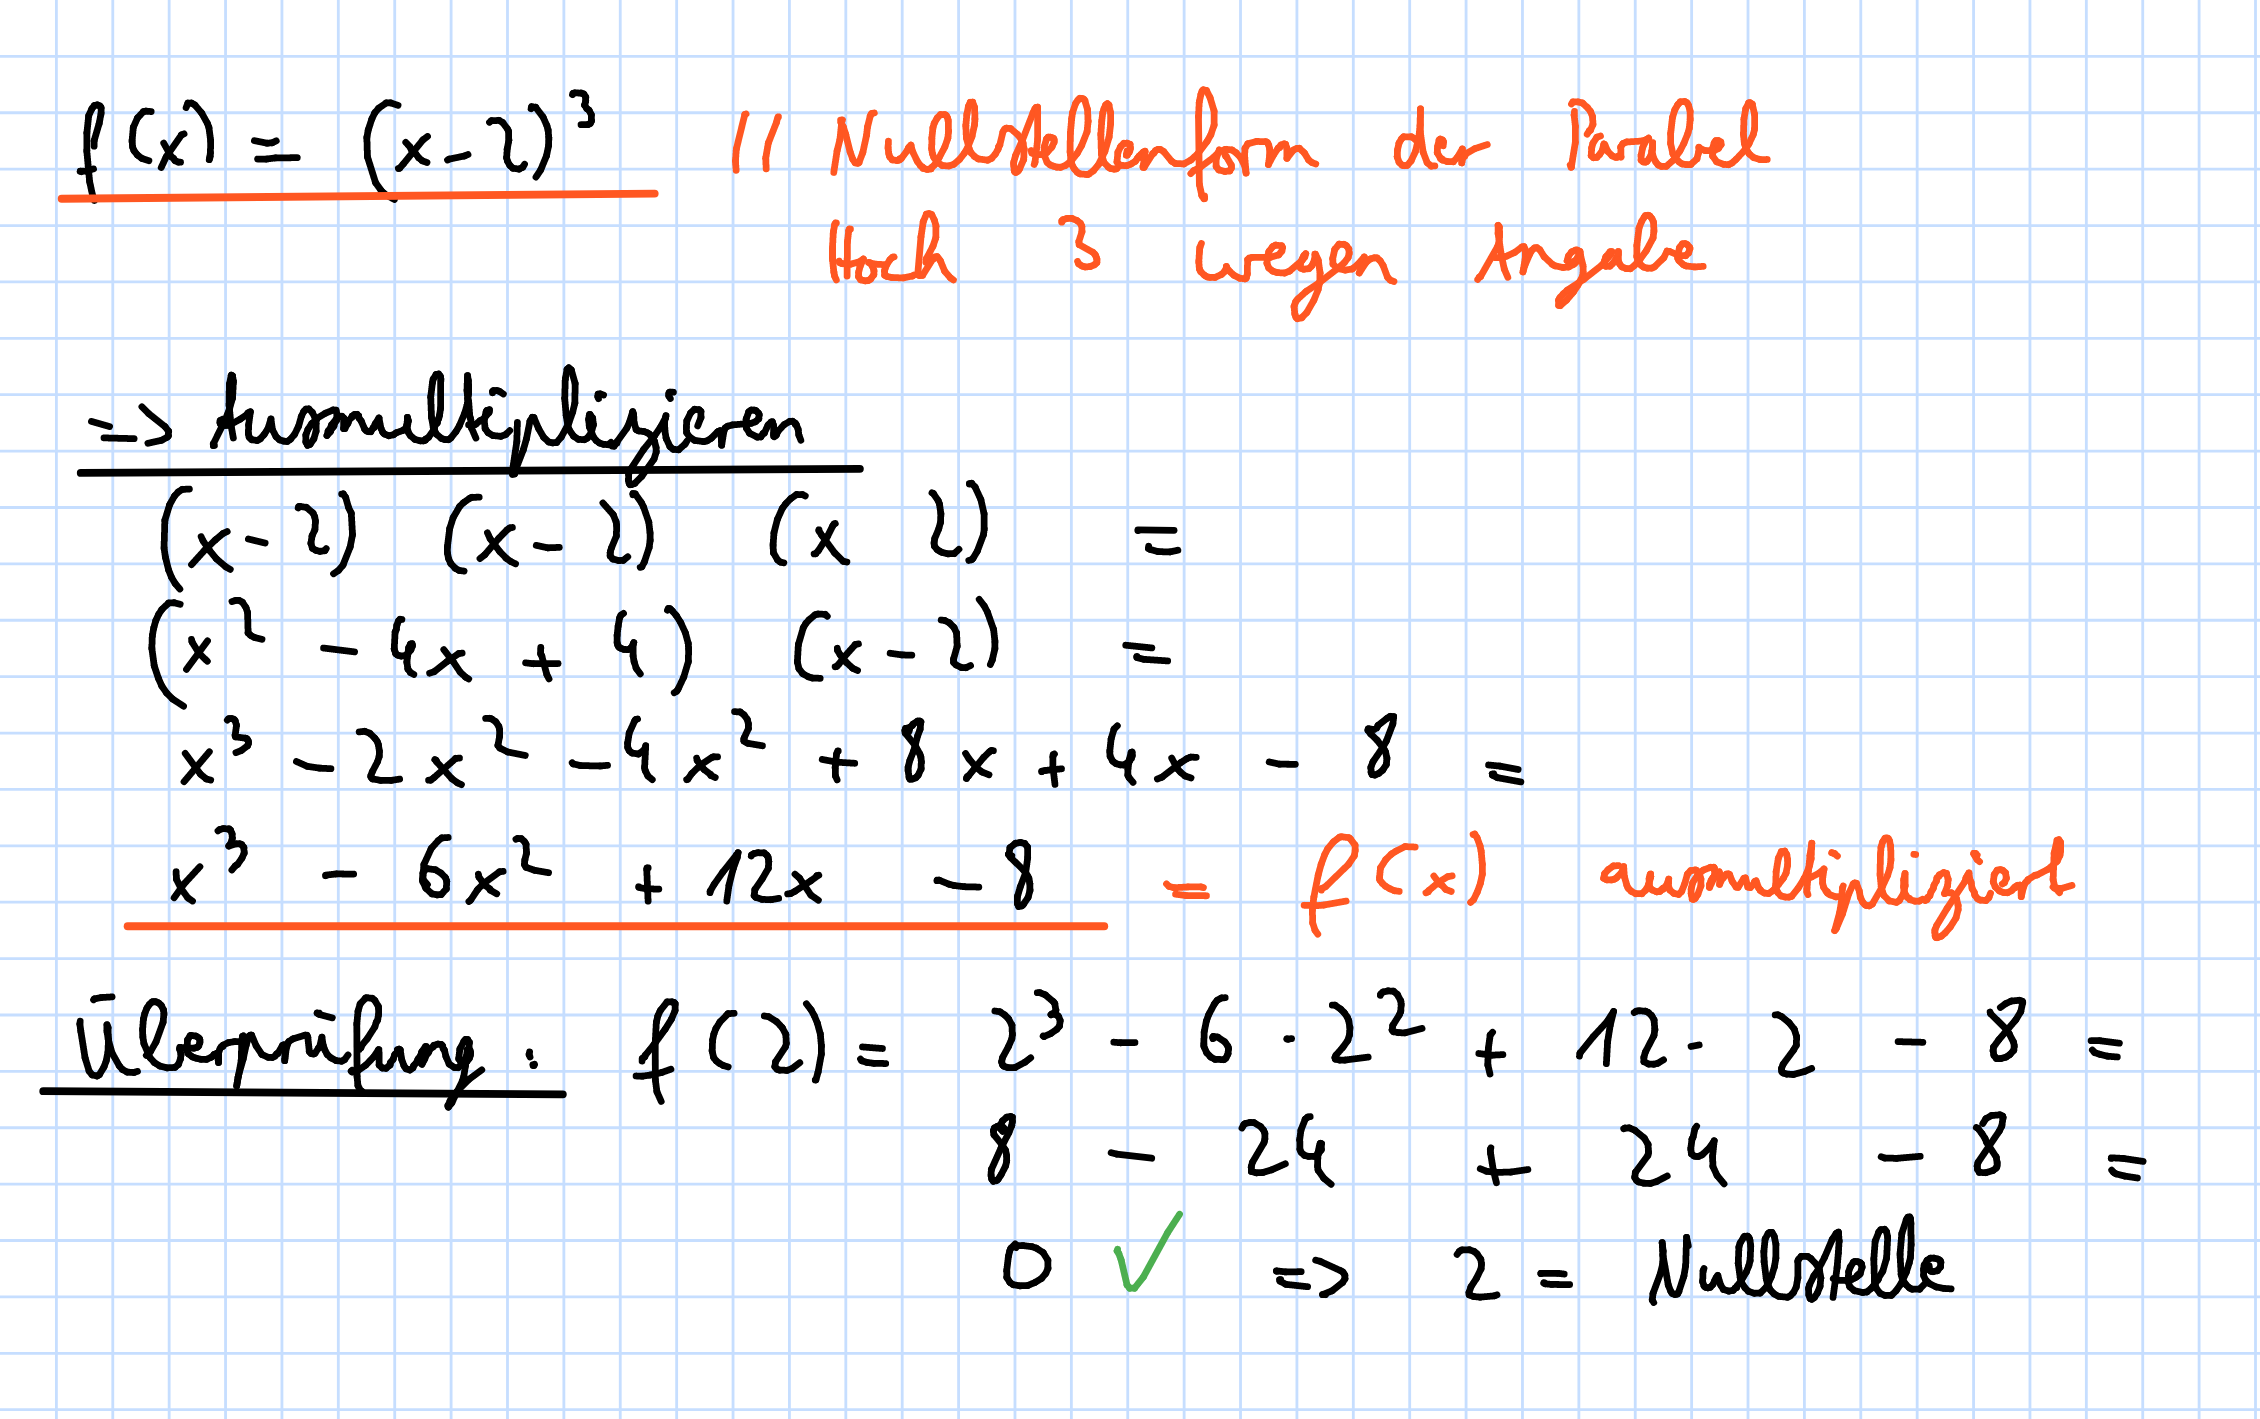 f(x) = (x-2)³ // Nullstellenform der Parabel
Hoch 3 wegen Angabe
=> Ausmultiplizieren
(x-2) (x-2) (x 2) =
(x² - 4x + 4) (x-2) =
x³ - 2x² - 4x² + 8x + 4x - 8 =
x³ - 6x² + 12x - 8 = f(x) ausmultipliziert
Überprüfung: f(2) = 2³ - 6 · 2² + 12 · 2 - 8 =
8 - 24 + 24 - 8 =
0 ✓ => 2 = Nullstelle